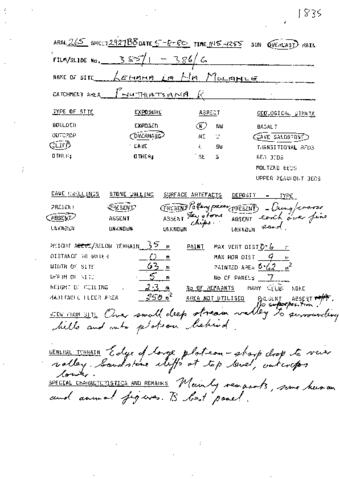 1835
AREA 2/5 SHEET 2927BB DATE 5-8-80 TIME 1115-1255 SUN OVERCAST RAIN
FILM/SLIDE No. 385/1 - 386/6
NAME OF SITE LEHAHA LA HA
CATCHMENT AREA PHUTHIATSANA R
TYPE OF SITE EXPOSURE ASPECT GEOLOGICAL STRATA
BOULDER EXPOSED N NW BASALT
OUTCROP OVERHANG NE W CAVE SANDSTONE
CLIFF CAVE E SW TRANSITIONAL BEDS
OTHER: OTHER: SE S RED BEDS
MOLTENO BEDS
UPPER BEAUFORT BEDS
CAVE DWELLINGS STONE WALLING SURFACE ARTEFACTS DEPOSIT - TYPE
PRESENT PRESENT PRESENT PRESENT - Dung/coarse
ABSENT ABSENT ABSENT few stone chips. ABSENT over fine
UNKNOWN UNKNOWN UNKNOWN UNKNOWN sand.
HEIGHT /BELOW TERRAIN 35 m PAINT MAX VERT DIST 0.6
DISTANCE TO WATER 0 m MAX HOR DIST 9 m
WIDTH OF SITE 63 m PAINTED AREA m²
DEPTH OF SITE 5 m No OF PANELS 7
HEIGHT OF CEILING 2.3 m No OF REMNANTS MANY NONE
FLOOR AREA 250 m² AREA NOT UTILISED PRESENT ABSENT
No superposition.
VIEW FROM SITE Over small deep stream valley to surrounding
hills and onto plateau behind.
GENERAL TERRAIN Edge of large plateau - sharp drop to river
valley. Sandstone cliffs at top level, outcrops
lower.
SPECIAL CHARACTERISTICS AND REMARKS Mainly remnants, some human
and animal figures. B best panel.